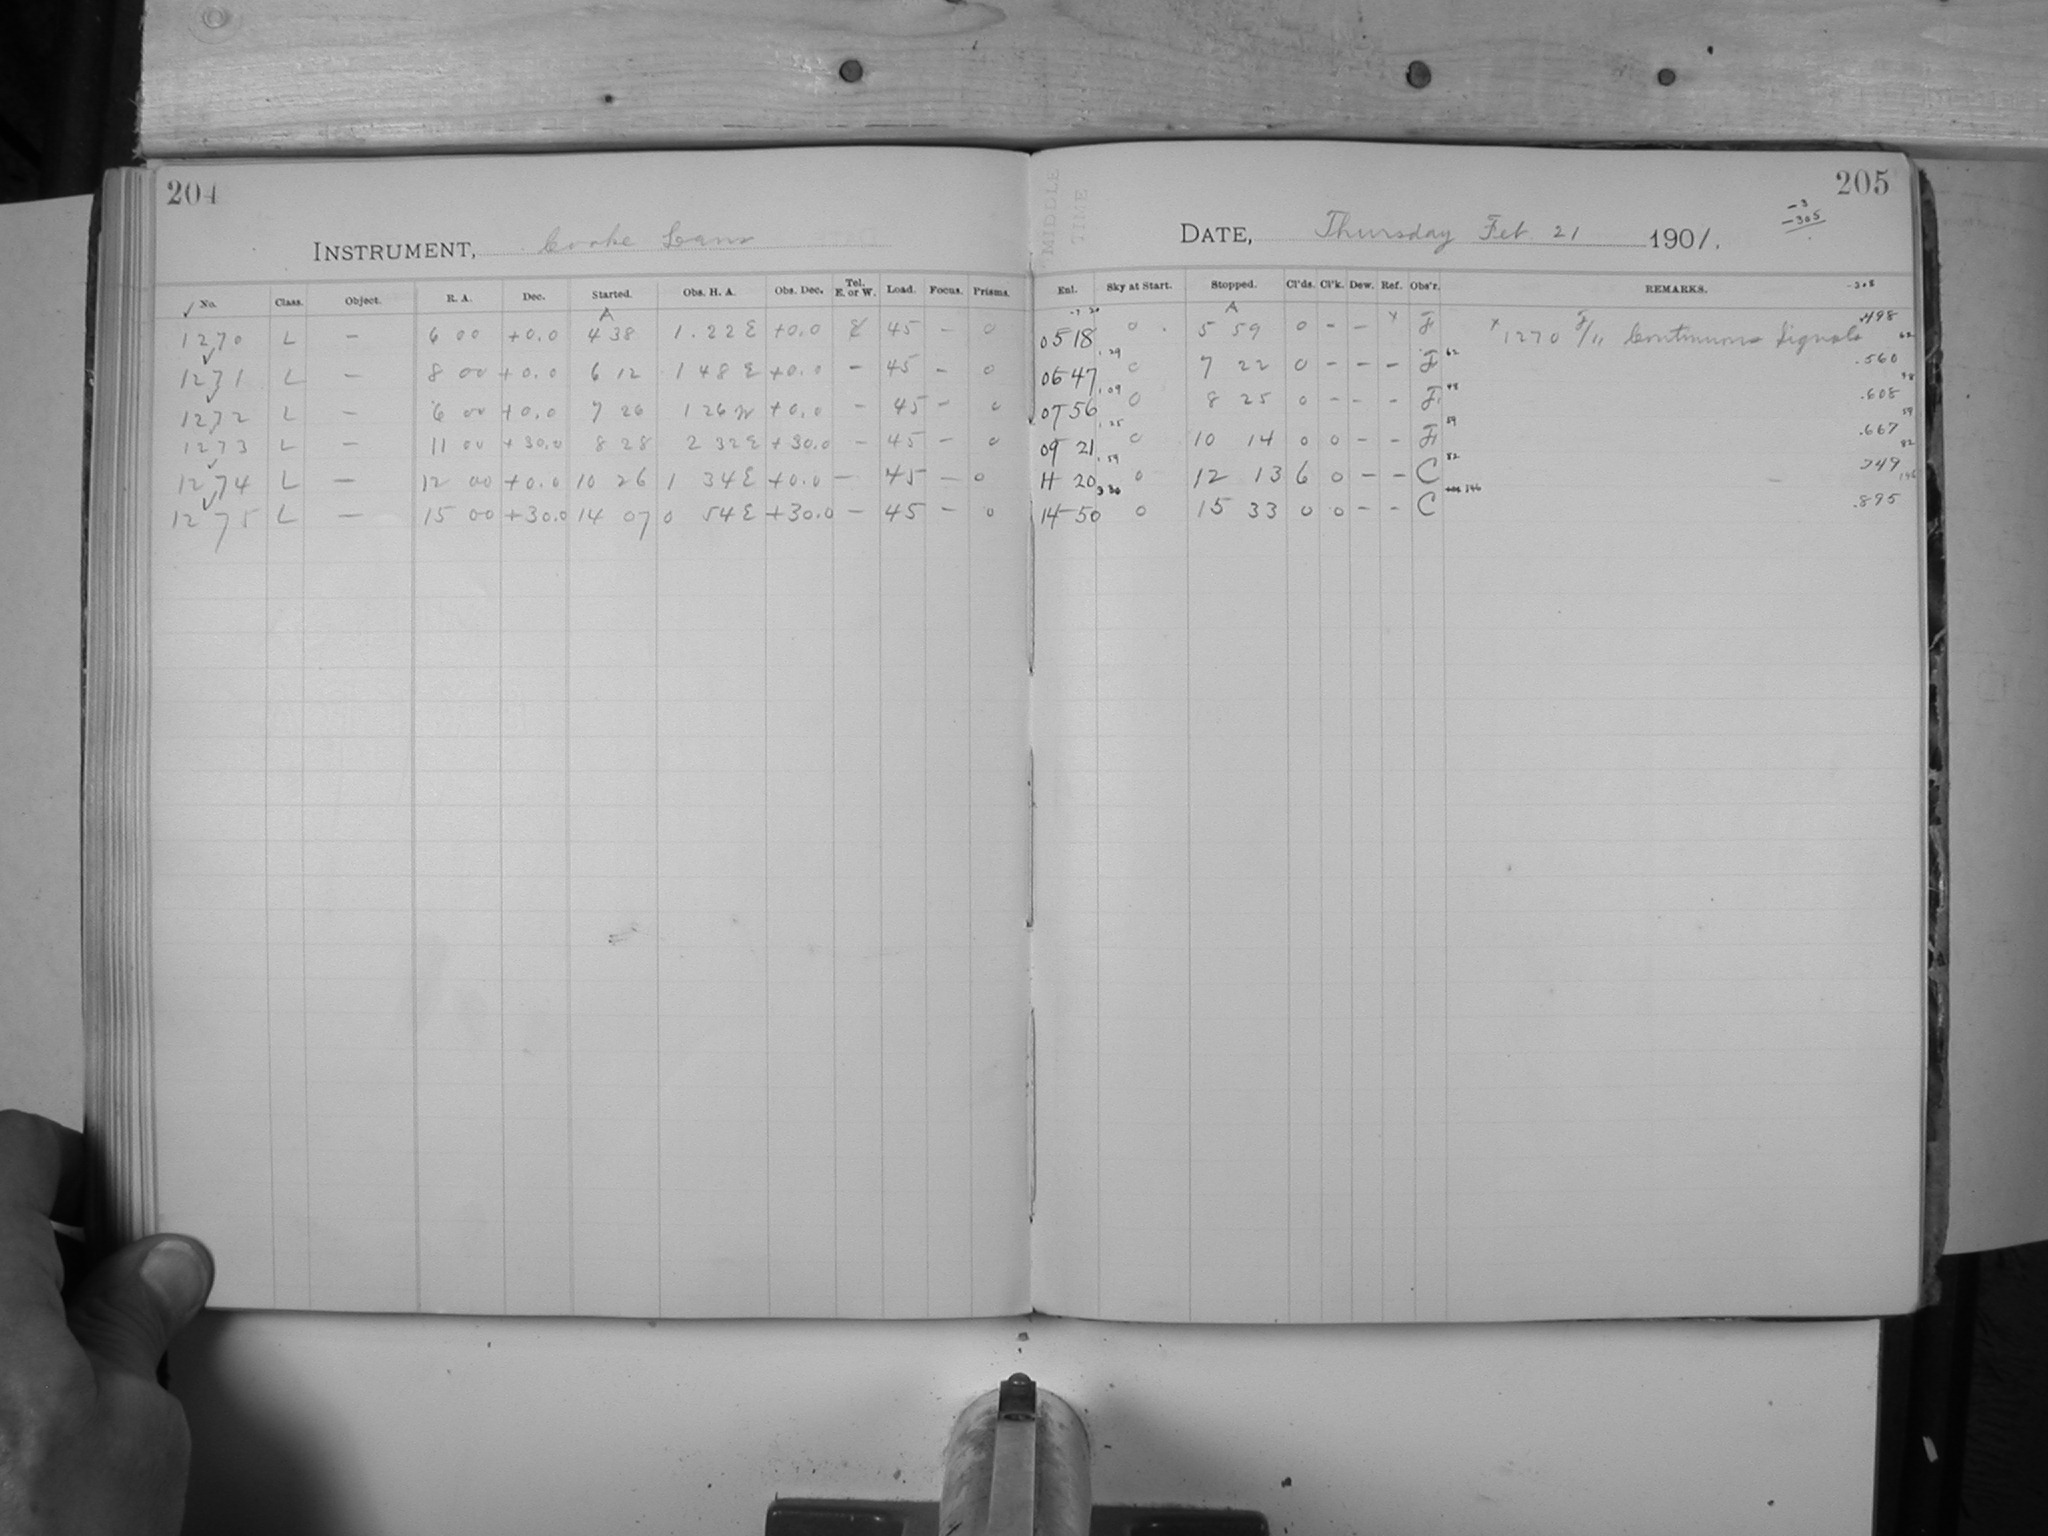 204
INSTRUMENT, Cooke Lens
No. Class. Object. R. A. Dec. Started. Obs. H. A. Obs. Dec. Tel. E. or W. Load. Focus. Prisms.
A
1270 L — 6 00 +0.0 4 38 1.22 E +0.0 E 45 — 0
1271 L — 8 00 +0.0 6 12 1 48 E +0.0 — 45 — 0
1272 L — 6 00 +0.0 7 26 1 26 W +0.0 — 45 — 0
1273 L — 11 00 +30.0 8 28 2 32 E +30.0 — 45 — 0
1274 L — 12 00 +0.0 10 26 1 34 E +0.0 — 45 — 0
1275 L — 15 00 +30.0 14 07 0 54 E +30.0 — 45 — 0
205
MIDDLE TIME
-3
-305
DATE, Thursday Feb. 21 1901.
Enl. Sky at Start. Stopped. Cl'ds. Cl'k. Dew. Ref. Obs'r. REMARKS. -308
A
05 18 0 5 59 0 - - x F x 1270 F/11 Continuous Signals .498 62
1.29
06 47 0 7 22 0 - - - F 62 .560 48
1.09
07 56 0 8 25 0 - - - F 48 .608 59
1.25
09 21 0 10 14 0 0 - - F 59 .667 82
1.59
11 20 0 12 13 6 0 - - C 82 .749 146
3 30
14 50 0 15 33 0 0 - - C 146 .895